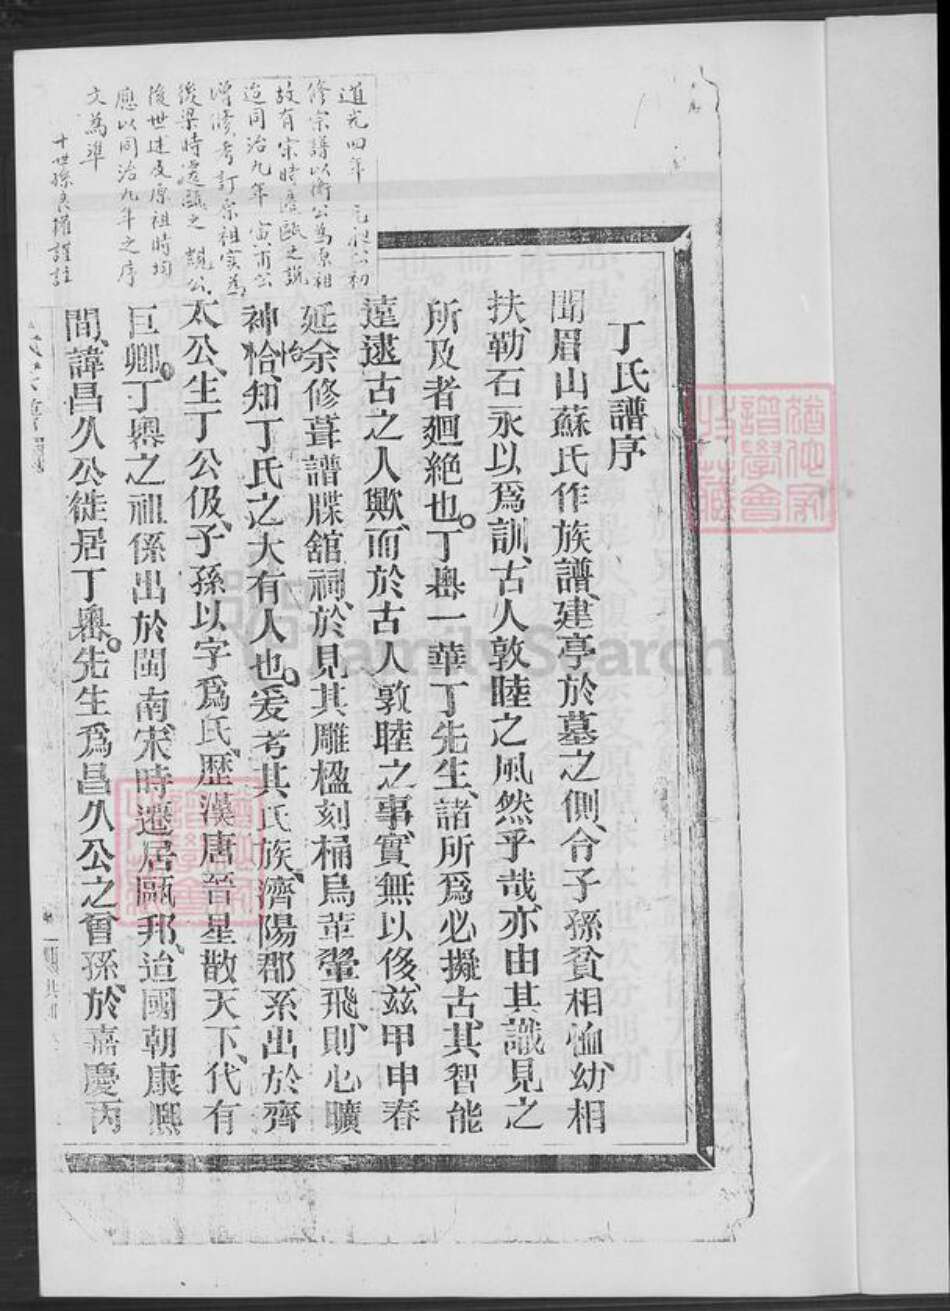 丁氏譜序
聞眉山蘇氏作族譜、建亭於墓之側、令子孫貧相恤、幼相
扶、勒石永以爲訓、古人敦睦之風然乎哉、亦由其識見之
所及者廻絶也。丁嶴一華丁先生、諸所爲必擬古、其智能
遠逮古之人歟、而於古人敦睦之事、實無以後、茲甲申春
延余修葺譜牒舘祠、於見其雕楹刻桷鳥革翬飛、則心曠
神恰、知丁氏之大有人也。爰考其氏族、濟陽郡系出於齊
怡
太公、生丁公伋、子孫以字爲氏、歷漢唐晉星散天下、代有
巨卿。丁嶴之祖係出於閩南、宋時遷居甌邦、迨國朝康熙
間、諱昌久公徙居丁嶴。先生爲昌久公之曾孫、於嘉慶丙
道光四年 公初
修宗譜以衛公為原祖
故有宋時遷甌之說
迨同治九年 寅 公
增修考訂宗祖實為
後梁時遷甌之 公
後世述及原祖時均
應以同治九年之序
文為準
十世孫良 謹註
猶他家
譜學會
收藏
猶他家
譜學會
收藏
FamilySearch